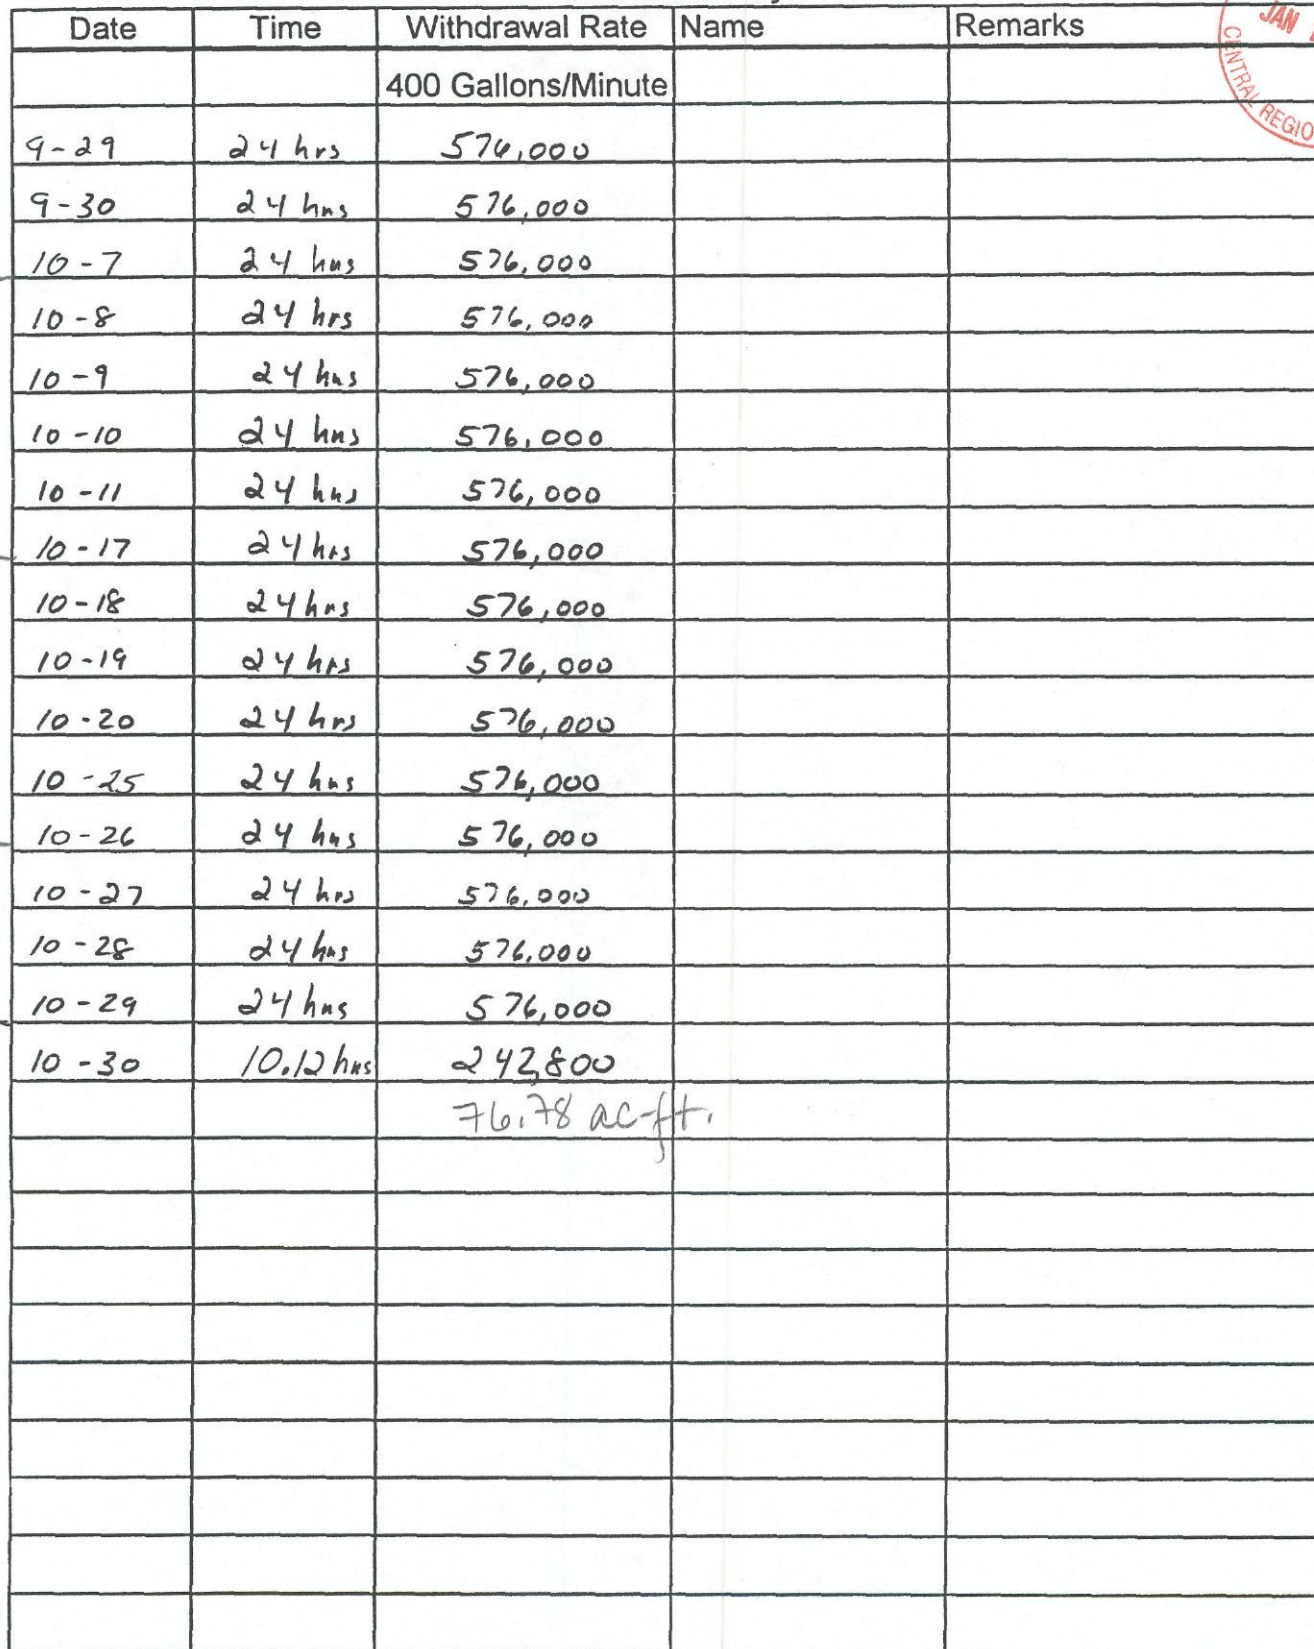 Date Time Withdrawal Rate Name Remarks
400 Gallons/Minute
9-29 24 hrs 576,000
9-30 24 hrs 576,000
10-7 24 hrs 576,000
10-8 24 hrs 576,000
10-9 24 hrs 576,000
10-10 24 hrs 576,000
10-11 24 hrs 576,000
10-17 24 hrs 576,000
10-18 24 hrs 576,000
10-19 24 hrs 576,000
10-20 24 hrs 576,000
10-25 24 hrs 576,000
10-26 24 hrs 576,000
10-27 24 hrs 576,000
10-28 24 hrs 576,000
10-29 24 hrs 576,000
10-30 10.12 hrs 242,800
76.78 ac-ft.
JAN
CENTRAL REGIO